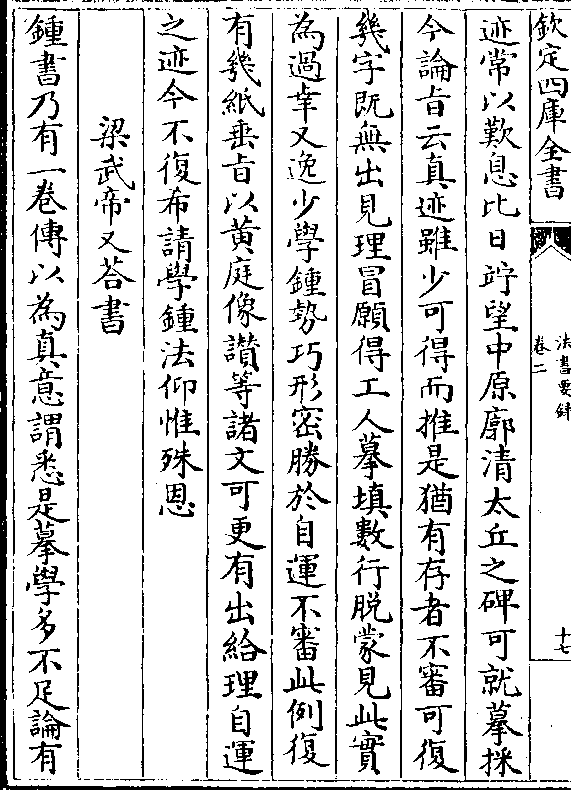 欽定四庫全書
法書要録
卷二
十七
迹常以歎息比日竚望中原廓清太丘之碑可就摹採
今論旨云真迹雖少可得而推是猶有存者不審可復
幾字既無出見理冒願得工人摹填數行脱蒙見此實
為過幸又逸少學鍾勢巧形宻勝於自運不審此例復
有幾紙垂旨以黄庭像讃等諸文可更有出給理自運
之迹今不復希請學鍾法仰惟殊恩
梁武帝又荅書
鍾書乃有一卷傳以為真意謂悉是摹學多不足論有